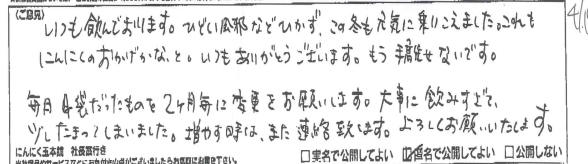 (ご意見)
いつも飲んでおります。ひどい風邪などひかず、この冬も元気に乗りこえました。これも
にんにくのおかげかな、と。いつもありがとうございます。もう手離せないです。
毎月4袋だったものを2ヶ月毎に変更をお願いします。大事に飲みすぎて、
少したまってしまいました。増やす時は、また連絡致します。よろしくお願いいたします。
にんにく玉本舗 社長宛行き
□実名で公開してよい ☑匿名で公開してよい □公開しない